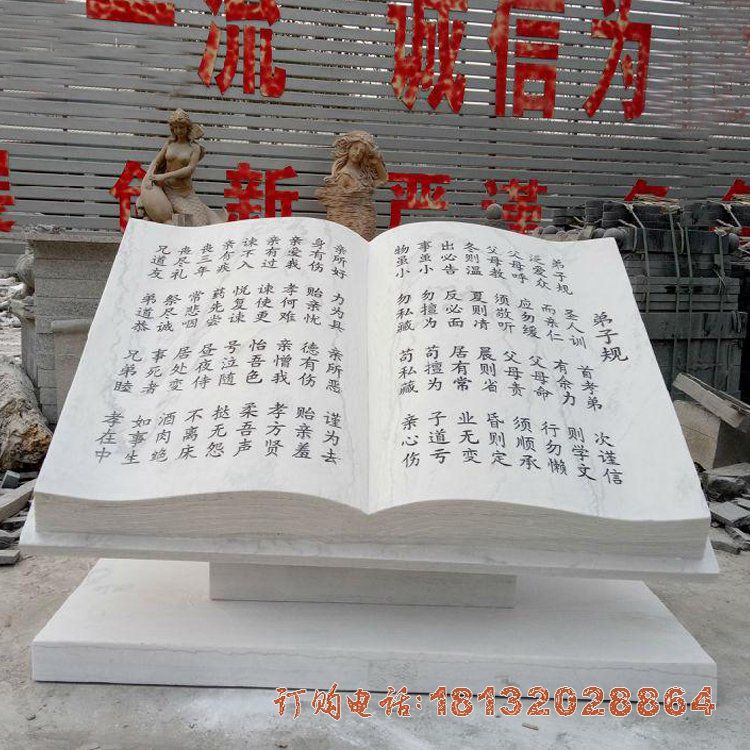 一流 诚信为
创新 严谨
弟子规
弟子规 圣人训 首孝弟 次谨信
泛爱众 而亲仁 有余力 则学文
父母呼 应勿缓 父母命 行勿懒
父母教 须敬听 父母责 须顺承
冬则温 夏则凊 晨则省 昏则定
出必告 反必面 居有常 业无变
事虽小 勿擅为 苟擅为 子道亏
物虽小 勿私藏 苟私藏 亲心伤
亲所好 力为具 亲所恶 谨为去
身有伤 贻亲忧 德有伤 贻亲羞
亲爱我 孝何难 亲憎我 孝方贤
亲有过 谏使更 怡吾色 柔吾声
谏不入 悦复谏 号泣随 挞无怨
亲有疾 药先尝 昼夜侍 不离床
丧三年 常悲咽 居处变 酒肉绝
丧尽礼 祭尽诚 事死者 如事生
兄道友 弟道恭 兄弟睦 孝在中
订购电话:18132028864